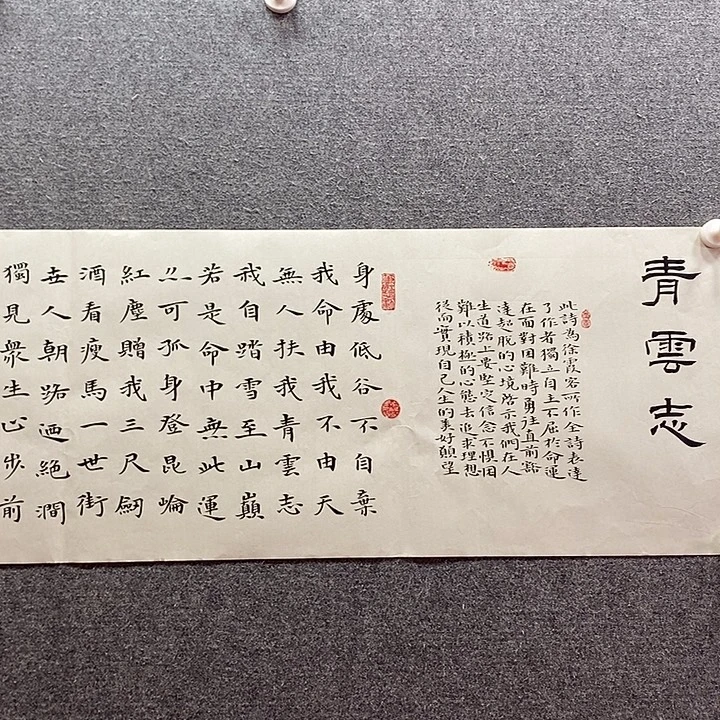 青雲志
此詩為徐霞客所作全詩表達
了作者獨立自主不屈於命運
在面對困難時勇往直前豁
達超脫的心境啓示我們在人
生道路上要堅定信念不懼困
難以積極的心態去追求理想
從而實現自己人生的美好願望
身處低谷不自棄
我命由我不由天
無人扶我青雲志
我自踏雪至山巔
若是命中無此運
亦可孤身登昆崘
紅塵贈我三尺劍
酒看瘦馬一世街
世人朝路迺絕澗
獨見眾生止步前